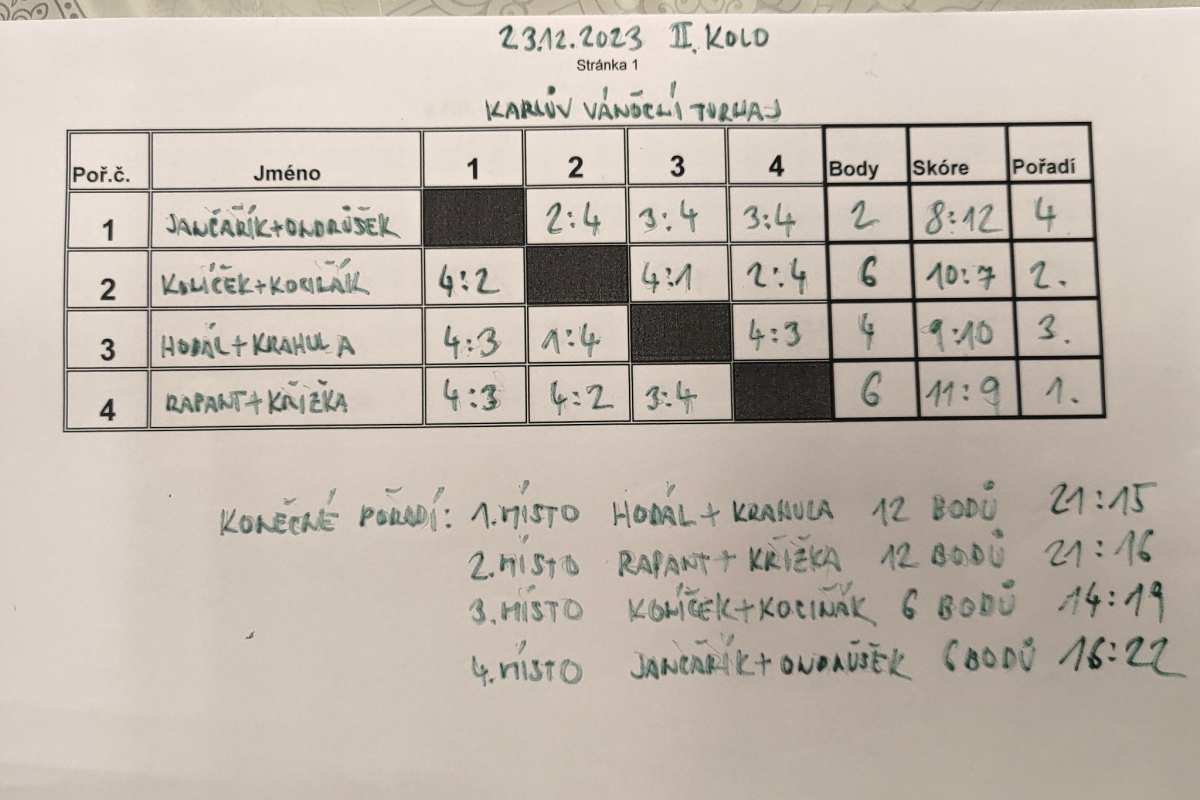 23.12.2023 II. KOLO
Stránka 1
KARLŮV VÁNOČNÍ TURNAJ
Poř.č. Jméno 1 2 3 4 Body Skóre Pořadí
1 JANČAŘÍK+ONDRŮŠEK 2:4 3:4 3:4 2 8:12 4
2 KONÍČEK+KOCIŇÁK 4:2 4:1 2:4 6 10:7 2.
3 HODÁL+KRAHULA 4:3 1:4 4:3 4 9:10 3.
4 RAPANT+KŘIŽKA 4:3 4:2 3:4 6 11:9 1.
KONEČNÉ POŘADÍ: 1.MÍSTO HODÁL+KRAHULA 12 BODŮ 21:15
2.MÍSTO RAPANT+KŘIŽKA 12 BODŮ 21:16
3.MÍSTO KONÍČEK+KOCIŇÁK 6 BODŮ 14:19
4.MÍSTO JANČAŘÍK+ONDRŮŠEK 6 BODŮ 16:22